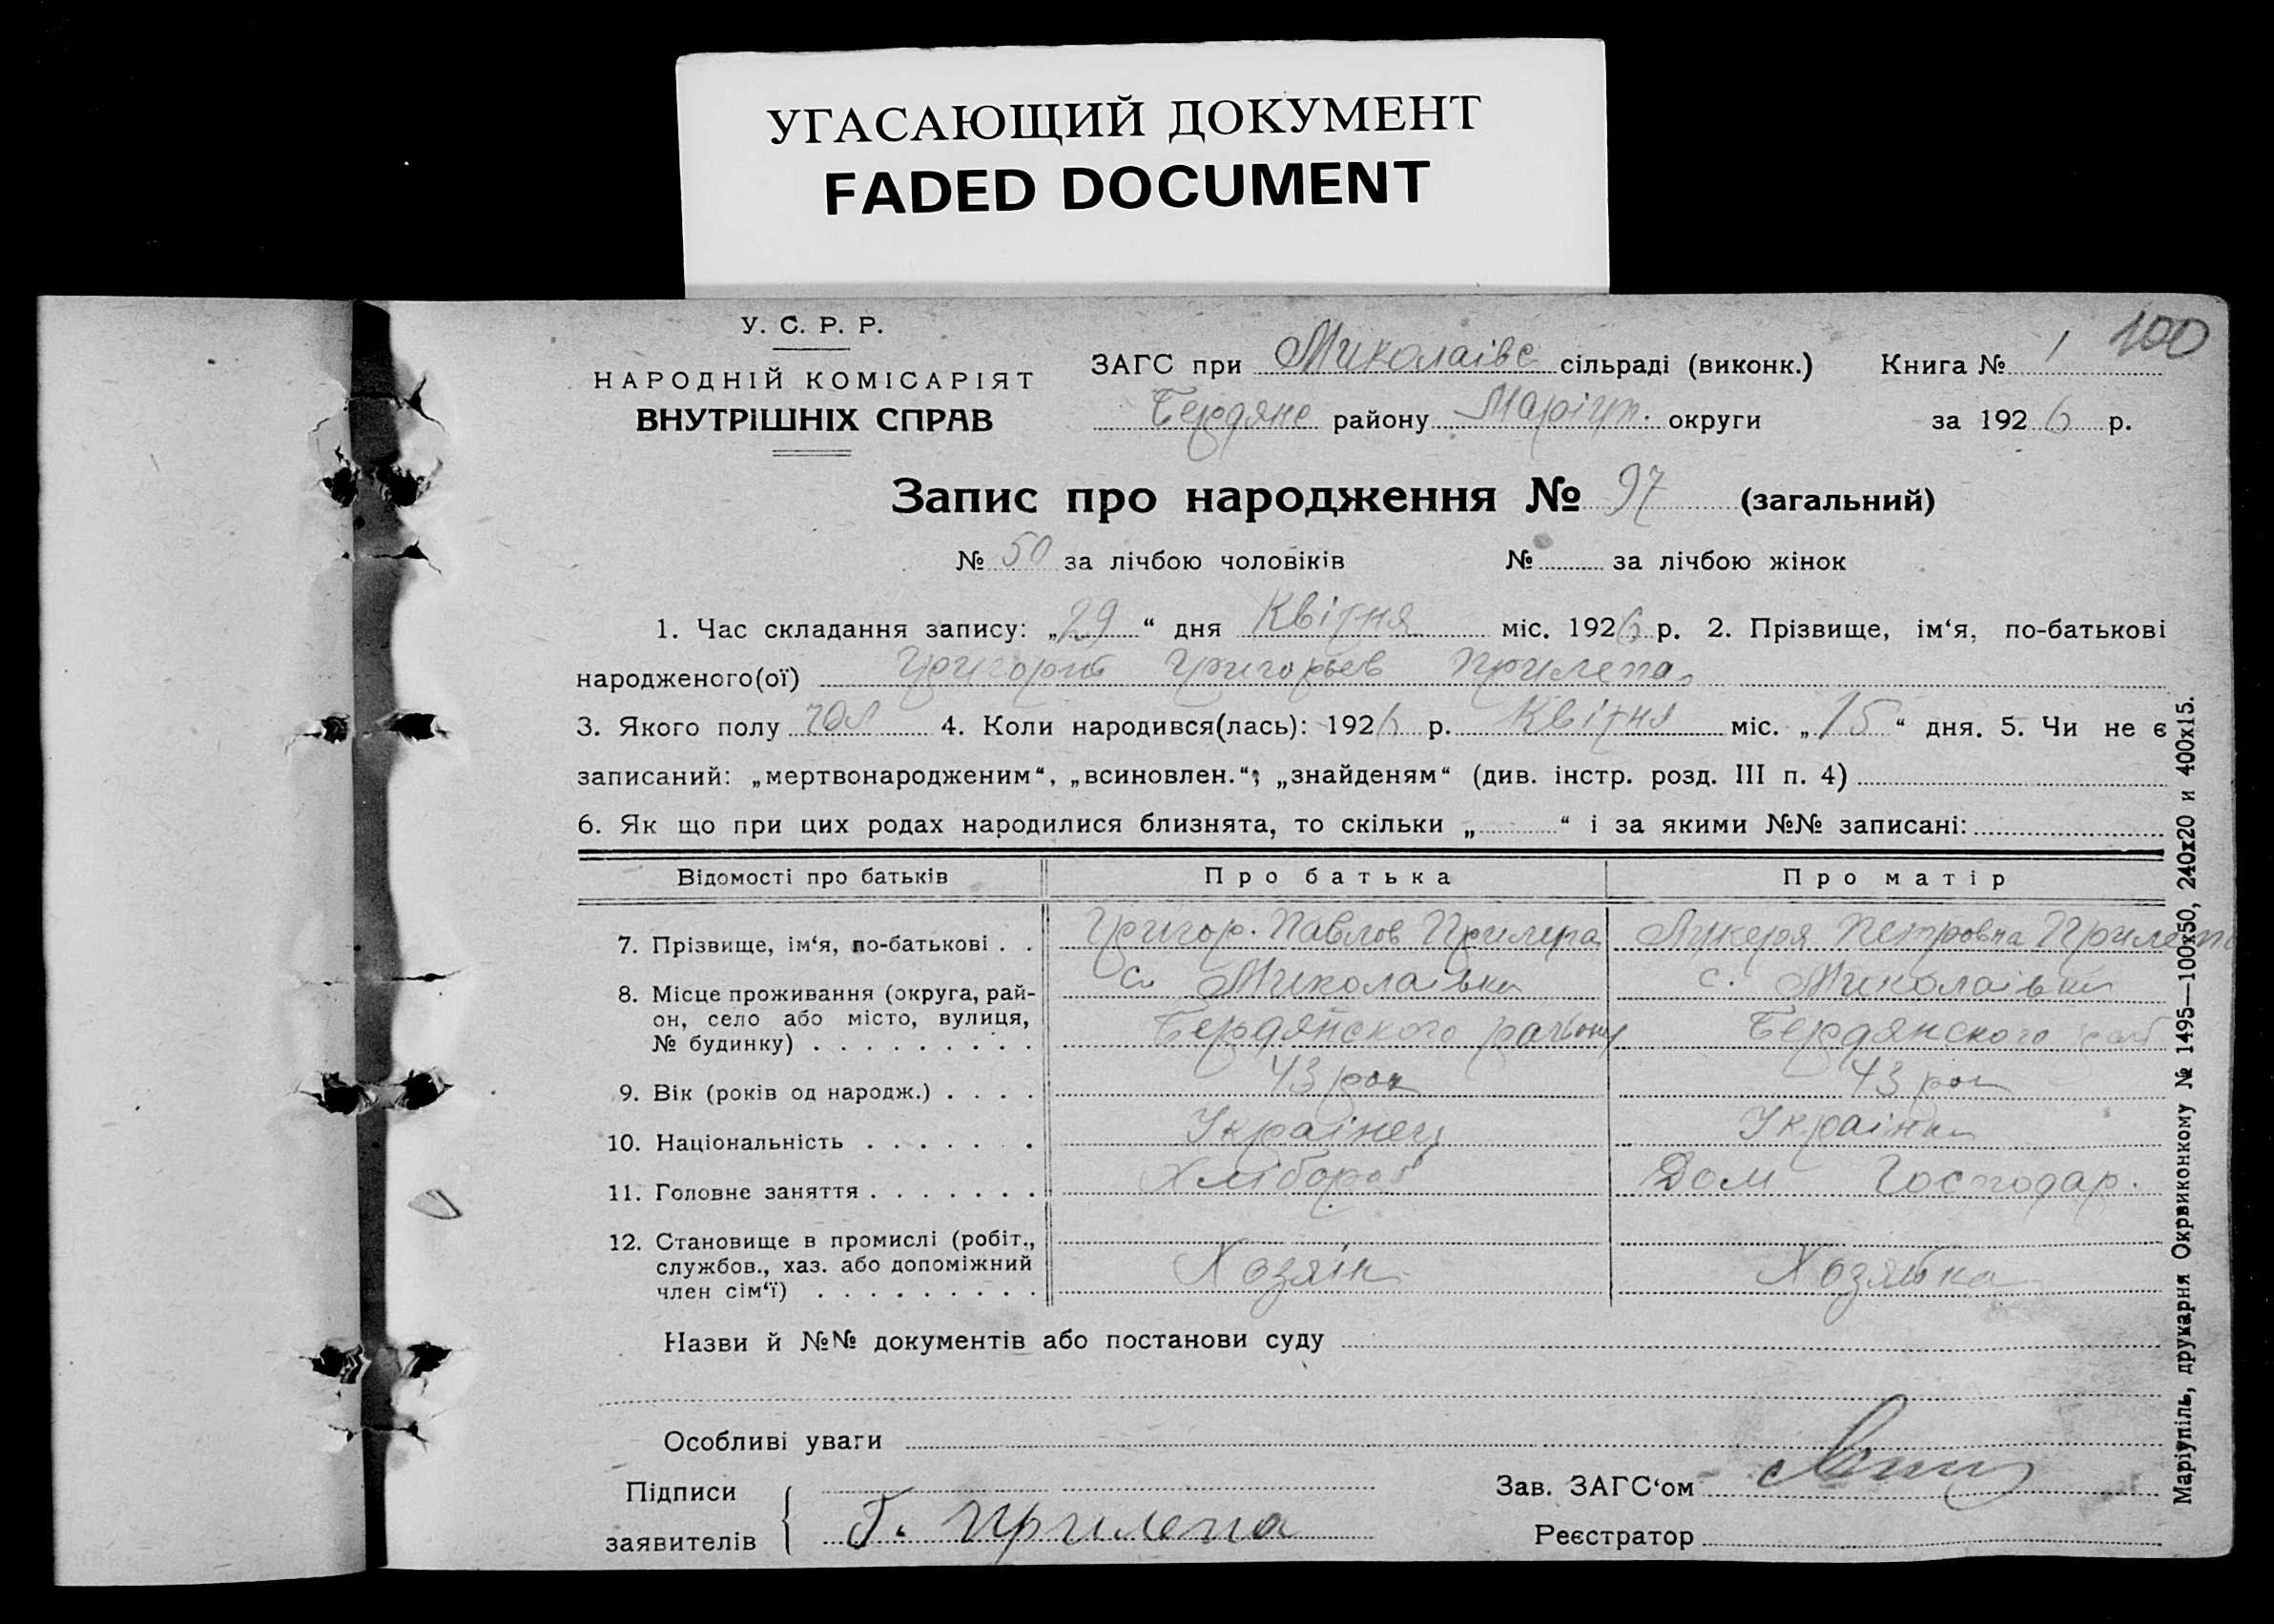 УГАСАЮЩИЙ ДОКУМЕНТ
FADED DOCUMENT
У. С. Р. Р.
НАРОДНІЙ КОМІСАРІЯТ
ВНУТРІШНІХ СПРАВ
ЗАГС при Миколаівс сільраді (виконк.) Книга № 1 100
Бердянс району Маріуп. округи за 1926 р.
Запис про народження № 97 (загальний)
№ 50 за лічбою чоловіків № за лічбою жінок
1. Час складання запису: „29“ дня Квітня міс. 1926 р. 2. Прізвище, ім‘я, по-батькові
народженого(ої) Григорий Григорьев Прилепа
3. Якого полу чол 4. Коли народився(лась): 1926 р. Квітня міс. „15“ дня. 5. Чи не є
записаний: „мертвонародженим“, „всиновлен.“; „знайденям“ (див. інстр. розд. III п. 4)
6. Як що при цих родах народилися близнята, то скільки „ “ і за якими №№ записані:
Відомості про батьків Про батька Про матір
7. Прізвище, ім‘я, по-батькові . . Григор. Павлов Прилепа Лукеря Петровна Прилепа
8. Місце проживання (округа, рай- с. Миколаівка с. Миколаівка
он, село або місто, вулиця,
№ будинку) . . . . . . . . . Бердянского району Бердянского рай
9. Вік (років од народж.) . . . . 43 рок 43 рок
10. Національність . . . . . . . Украінец Украінка
11. Головне заняття . . . . . . . Хлібороб Дом Господар.
12. Становище в промислі (робіт.,
службов., хаз. або допоміжний Хозяін Хозяйка
член сім‘ї) . . . . . . . . .
Назви й №№ документів або постанови суду
Особливі уваги
Підписи
заявителів Г. Прилепа
Зав. ЗАГС‘ом
Реєстратор
Маріупіль, друкарня Окрвиконкому № 1495—100х50, 240х20 и 400х15.